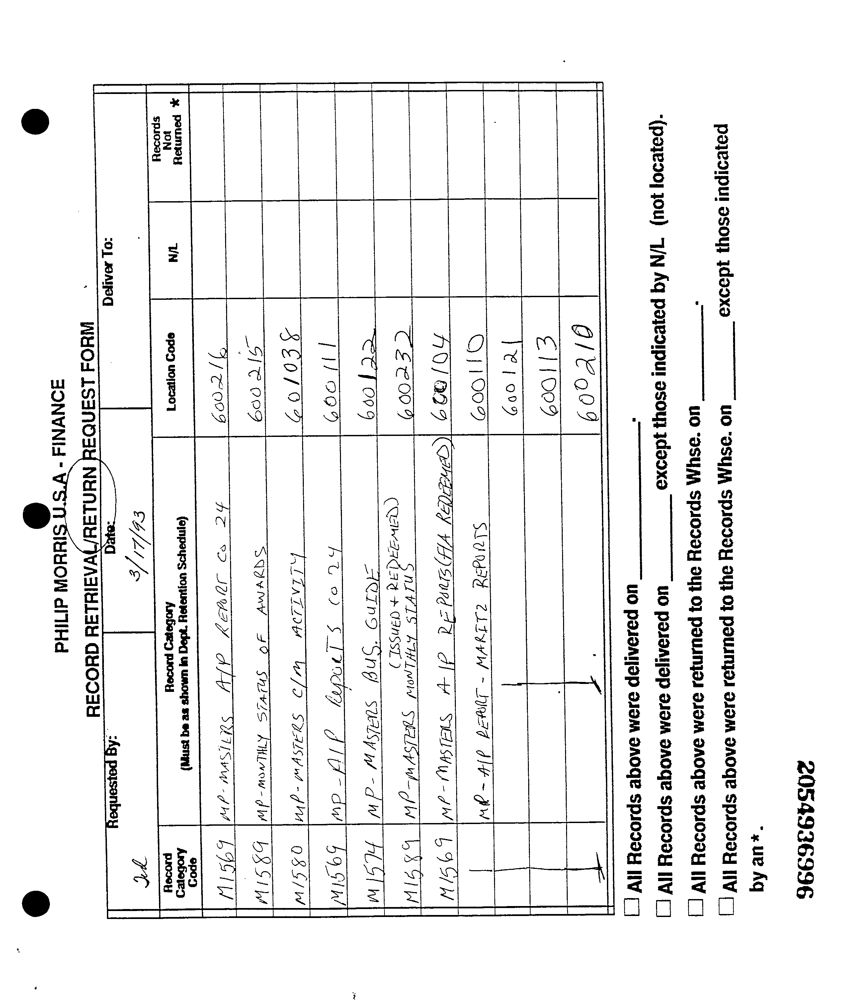 PHILIP MORRIS U.S.A - FINANCE
RECORD RETRIEVAL/RETURN REQUEST FORM
Requested By: Date: Deliver To:
3/17/93
Record Category Code Record Category (Must be as shown in Dept. Retention Schedule) Location Code N/L Records Not Returned *
M1569 MP-MASTERS A/P REPORT CO 24 600216
M1589 MP-MONTHLY STATUS OF AWARDS 600215
M1580 MP-MASTERS C/M ACTIVITY 601038
M1569 MP-A/P REPORTS CO 24 600111
M1574 MP-MASTERS BUS. GUIDE 600122
(ISSUED + REDEEMED)
M1589 MP-MASTERS MONTHLY STATUS 600232
M1569 MP-MASTERS A/P REPORTS (F/A REDEEMED) 600104
MP-A/P REPORT-MARITZ REPORTS 600110
600121
600113
600210
☐ All Records above were delivered on ________.
☐ All Records above were delivered on ________ except those indicated by N/L (not located).
☐ All Records above were returned to the Records Whse. on ________.
☐ All Records above were returned to the Records Whse. on ________ except those indicated
by an *.
2054936996